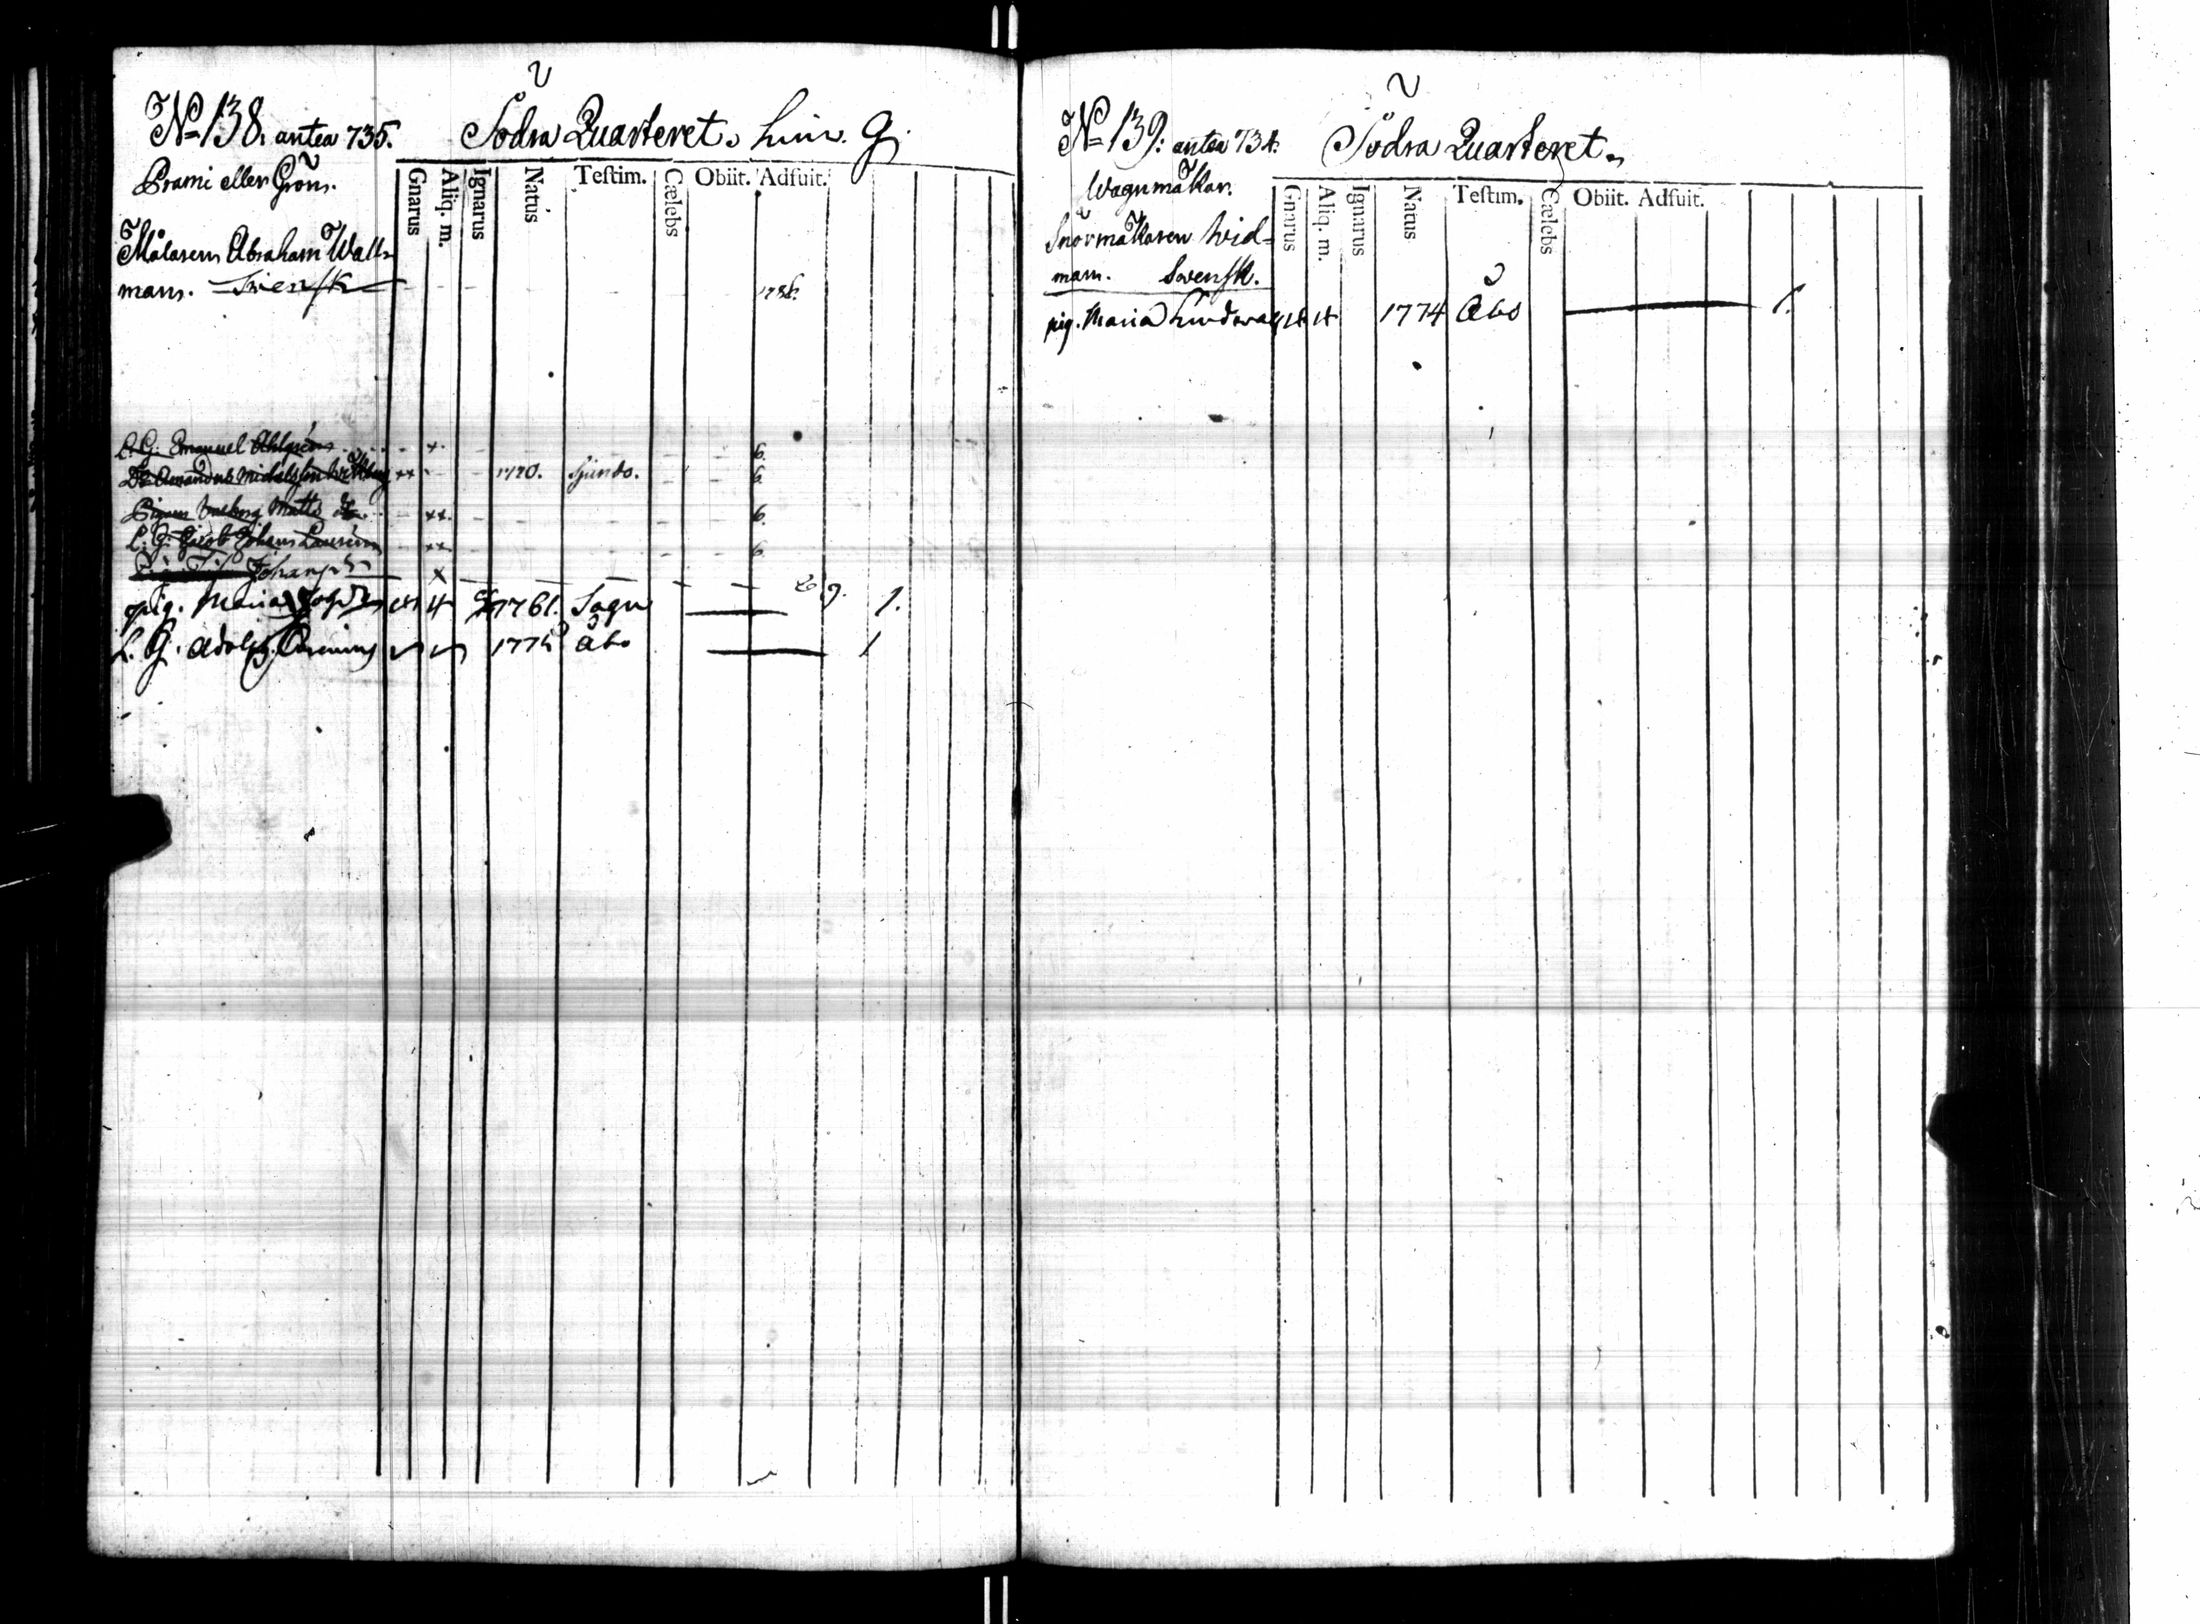 No 138. antea 735. Södra Quarteret. Lin. G.
Prami eller Gröns.
Gnarus Aliq. m. Ignarus Natus Testim. Cælebs Obiit. Adfuit.
Målaren Abraham Wall-
man. Swensk 
L. G. Emanuel Ahlgren x 6.
Do Amandus Michelsson xx 1770. Sjundo. 6.
Pigan Walborg Matts dr xx. 6.
L. G. Jacob Johan Laurén xx 6
Johans dr x
pig. Maria 1761. Sagu 9. 1.
L. G. Adolph Åbo 1
No 139: antea 734. Södra Quarteret.
Wagnmakar.
Gnarus Aliq. m. Ignarus Natus Testim. Cælebs Obiit. Adfuit.
Snörmakaren Wid-
man. Swensk.
pig. Maria 1774 Åbo 1.